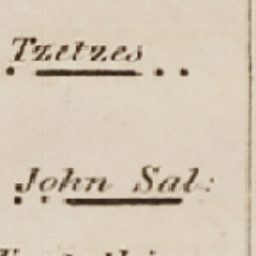 Tzetzes
John Sal: